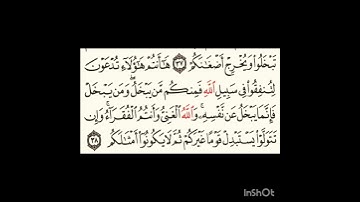 تَبْخَلُوا۟ وَيُخْرِجْ أَضْغَٰنَكُمْ ٣٧ هَٰٓأَنتُمْ هَٰٓؤُلَآءِ تُدْعَوْنَ
لِتُنفِقُوا۟ فِى سَبِيلِ ٱللَّهِ فَمِنكُم مَّن يَبْخَلُ ۖ وَمَن يَبْخَلْ
فَإِنَّمَا يَبْخَلُ عَن نَّفْسِهِۦ ۚ وَٱللَّهُ ٱلْغَنِىُّ وَأَنتُمُ ٱلْفُقَرَآءُ ۚ وَإِن
تَتَوَلَّوْا۟ يَسْتَبْدِلْ قَوْمًا غَيْرَكُمْ ثُمَّ لَا يَكُونُوٓا۟ أَمْثَٰلَكُم ٣٨
InShOt